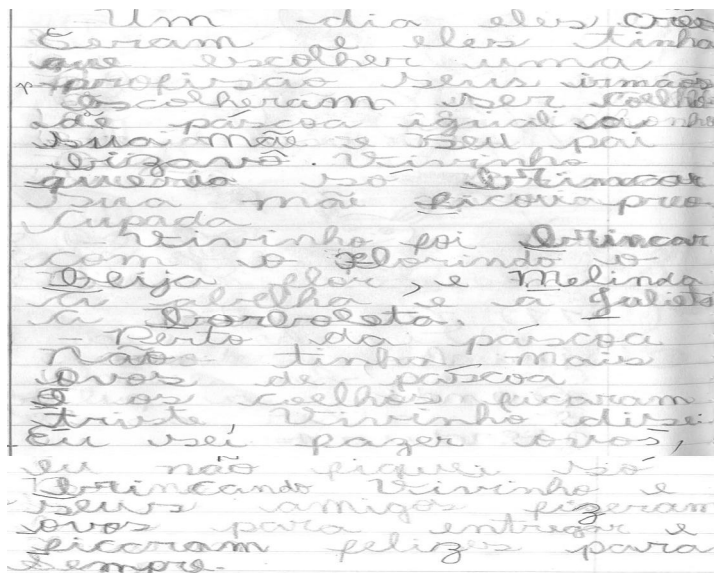 Um dia eles cres
Ceram e eles tinha
que escolher uma
profissão seus irmãos
escolheram ser coelho
de páscoa igual a
sua mãe e seu pai
bizavô. Vivinho
queria so brincar
sua mãi ficova preo
cupada
Vivinho foi brincar
com o Florindo o
Beija flor, e Melinda
a abelha e a Julieta
a borboleta.
Perto da páscoa
não tinha mais
ovos de páscoa
e os coelhos ficaram
triste Vivinho disse
eu sei fazer ovos,
eu não fiquei só
brincando Vivinho e
seus amigos fizeram
ovos para entregar e
ficaram felizes para
sempre.